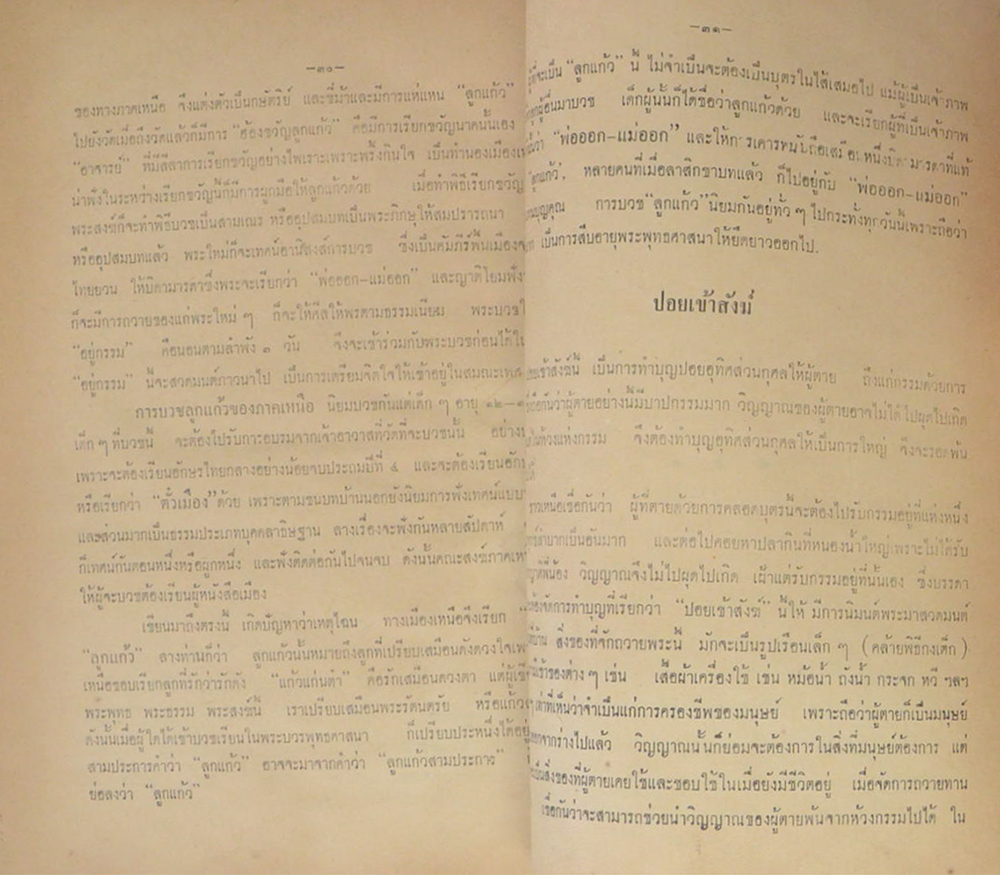 —๓๐—
ของทางภาคเหนือ จึงแต่งตัวเป็นกษัตริย์ และขี่ม้าและมีการแห่แหน “ลูกแก้ว”
ไปยังวัดเมื่อถึงวัดแล้วก็มีการ “ฮ้องขวัญลูกแก้ว” คือมีการเรียกขวัญนาคนั้นเอง
“อาจารย์” ที่มีลีลาการเรียกขวัญอย่างไพเราะเพราะพริ้งกินใจ เป็นทำนองเมืองเ
น่าฟังในระหว่างเรียกขวัญนี้ก็มีการผูกมือให้ลูกแก้วด้วย เมื่อทำพิธีเรียกขวัญ
พระสงฆ์ก็จะทำพิธีบวชเป็นสามเณร หรืออุปสมบทเป็นพระภิกษุให้สมปรารถนา
หรืออุปสมบทแล้ว พระใหม่ก็จะเทศน์อานิสงส์การบวช ซึ่งเป็นคัมภีร์พื้นเมืองข
ไทยยวน ให้บิดามารดาซึ่งพระจะเรียกว่า “พ่อออก—แม่ออก” และญาติโยมฟัง
ก็จะมีการถวายของแก่พระใหม่ ๆ ก็จะให้ศีลให้พรตามธรรมเนียม พระบวชใ
“อยู่กรรม” คือนอนตามลำพัง ๓ วัน จึงจะเข้าร่วมกับพระบวชก่อนได้ใน
“อยู่กรรม” นี้จะสวดมนต์ภาวนาไป เป็นการเตรียมจิตใจให้เข้าอยู่ในสมณะเพศ
การบวชลูกแก้วของภาคเหนือ นิยมบวชกันแต่เด็ก ๆ อายุ ๑๒—๑
เด็ก ๆ ที่บวชนี้ จะต้องไปรับการอบรมจากเจ้าอาวาสที่วัดที่จะบวชนั้น อย่าง
เพราะจะต้องเรียนอักษรไทยกลางอย่างน้อยจบประถมปีที่ ๔ และจะต้องเรียนอัก
หรือเรียกว่า “ตั๋วเมือง” ด้วย เพราะตามชนบทบ้านนอกยังนิยมการฟังเทศน์แบบ
และส่วนมากเป็นธรรมประเภทบุคคลาธิษฐาน ลางเรื่องจะฟังกันหลายสัปดาห์
ก็เทศน์กันตอนหนึ่งหรือผูกหนึ่ง และฟังติดต่อกันไปจนจบ ดังนั้นคณะสงฆ์ภาคเห
ให้ผู้จะบวชต้องเรียนผู้หนังสือเมือง
เขียนมาถึงตรงนี้ เกิดปัญหาว่าเหตุไฉน ทางเมืองเหนือจึงเรียก
“ลูกแก้ว” ลางท่านก็ว่า ลูกแก้วนั้นหมายถึงลูกที่เปรียบเสมือนดังดวงใจเพ
เหนือชอบเรียกลูกที่รักว่ารักดัง “แก้วแก่นตา” คือรักเสมือนดวงตา แต่ผู้เขี
พระพุทธ พระธรรม พระสงฆ์นี้ เราเปรียบเสมือนพระรัตนตรัย หรือแก้ว
ดังนั้นเมื่อผู้ใดได้เข้าบวชเรียนในพระบวรพุทธศาสนา ก็เปรียบประหนึ่งได้อยู่
สามประการคำว่า “ลูกแก้ว” อาจจะมาจากคำว่า “ลูกแก้วสามประการ”
ย่อลงว่า “ลูกแก้ว”
—๓๑—
ผู้ที่จะเป็น “ลูกแก้ว” นี้ ไม่จำเป็นจะต้องเป็นบุตรในไส้เสมอไป แม้ผู้เป็นเจ้าภาพ
ผู้อื่นมาบวช เด็กผู้นั้นก็ได้ชื่อว่าลูกแก้วด้วย และจะเรียกผู้ที่เป็นเจ้าภาพ
ว่า “พ่อออก—แม่ออก” และให้การเคารพนับถือเสมือนหนึ่งบิดามารดาที่แท้
“ลูกแก้ว” หลายคนที่เมื่อลาสิกขาบทแล้ว ก็ไปอยู่กับ “พ่อออก—แม่ออก”
บุญคุณ การบวช “ลูกแก้ว” นิยมกันอยู่ทั่ว ๆ ไปกระทั่งทุกวันนี้เพราะถือว่า
เป็นการสืบอายุพระพุทธศาสนาให้ยืดยาวออกไป.
ปอยเข้าสังฆ์
ปอยเข้าสังฆ์นี้ เป็นการทำบุญปอยอุทิศส่วนกุศลให้ผู้ตาย ถึงแก่กรรมด้วยการ
ถือกันว่าผู้ตายอย่างนี้มีบาปกรรมมาก วิญญาณของผู้ตายอาจไม่ได้ไปผุดไปเกิด
ในห้วงแห่งกรรม จึงต้องทำบุญอุทิศส่วนกุศลให้เป็นการใหญ่ จึงจะรอดพ้น
ชาวเหนือเชื่อกันว่า ผู้ที่ตายด้วยการคลอดบุตรนี้จะต้องไปรับกรรมอยู่ที่แห่งหนึ่ง
ลำบากเป็นอันมาก และต่อไปคอยหาปลากินที่หนองน้ำใหญ่เพราะไม่ได้รับ
ญาติพี่น้อง วิญญาณจึงไม่ไปผุดไปเกิด เฝ้าแต่รับกรรมอยู่ที่นั้นเอง ซึ่งบรรดา
ต้องจัดการทำบุญที่เรียกว่า “ปอยเข้าสังฆ์” นี้ให้ มีการนิมนต์พระมาสวดมนต์
ที่บ้าน สิ่งของที่จัดถวายพระนี้ มักจะเป็นรูปเรือนเล็ก ๆ (คล้ายพิธีกงเต็ก)
ข้าวของต่าง ๆ เช่น เสื้อผ้าเครื่องใช้ เช่น หม้อน้ำ ถังน้ำ กระจก หวี ฯลฯ
เท่าที่เห็นว่าจำเป็นแก่การครองชีพของมนุษย์ เพราะถือว่าผู้ตายก็เป็นมนุษย์
ออกจากร่างไปแล้ว วิญญาณนั้นก็ย่อมจะต้องการในสิ่งที่มนุษย์ต้องการ แต่
เป็นสิ่งของที่ผู้ตายเคยใช้และชอบใช้ในเมื่อยังมีชีวิตอยู่ เมื่อจัดการถวายทาน
เชื่อกันว่าจะสามารถช่วยนำวิญญาณของผู้ตายพ้นจากห้วงกรรมไปได้ ใน